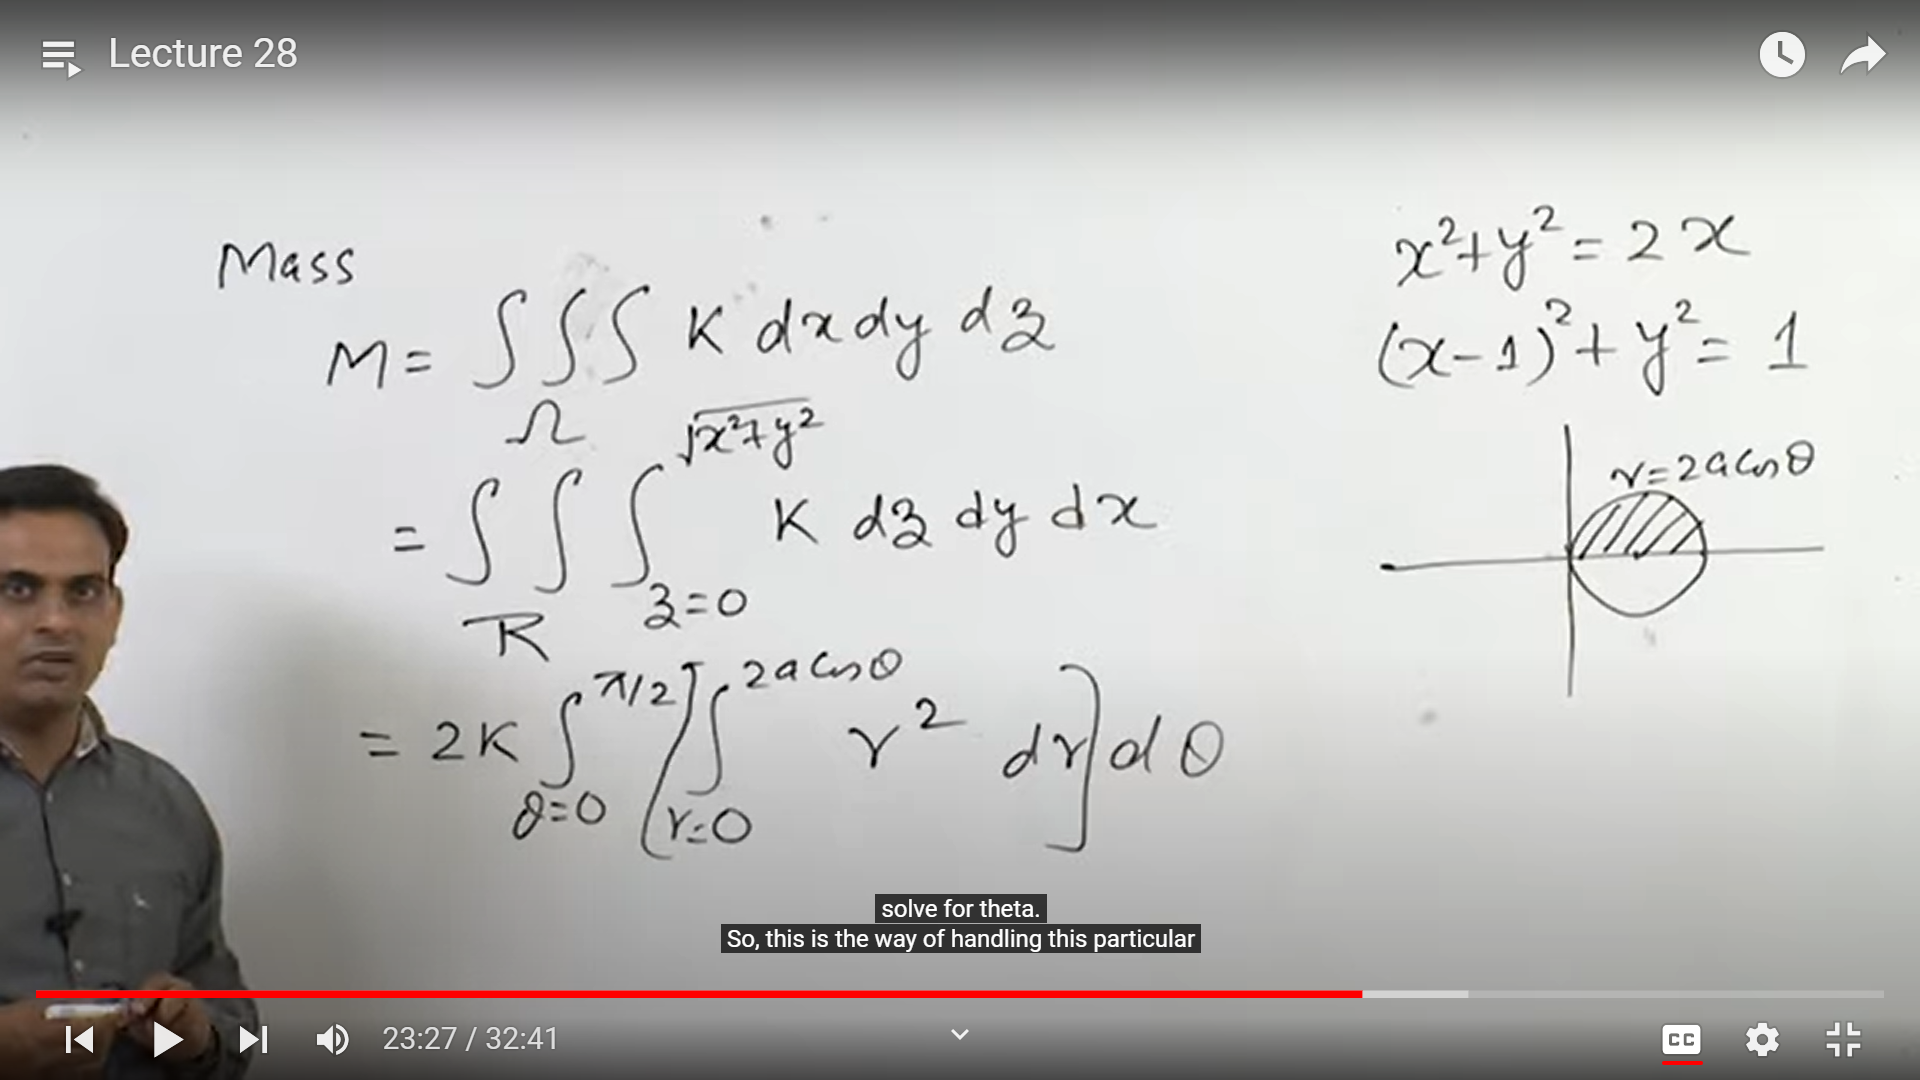 Lecture 28
Mass
M = ∫∫∫ K dx dy dz
Ω
= ∫∫∫ K dz dy dx
√x²+y²
R z=0
= 2K ∫ [∫ r² dr] dθ
π/2 2a cos θ
θ=0 r=0
x²+y² = 2x
(x-1)² + y² = 1
r=2a cos θ
solve for theta.
So, this is the way of handling this particular
23:27 / 32:41
CC